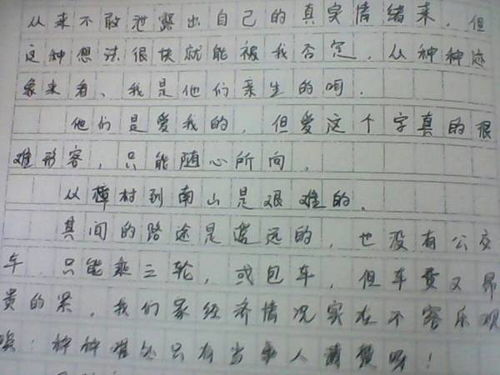 从来不敢泄露出自己的真实情绪来，但
这种想法很快就能被我否定，从种种迹
象来看，我是他们亲生的啊．
他们是爱我的，但爱这个字真的很
难形容，只能随心所向．
从樟村到南山是艰难的．
其间的路途是遥远的，也没有公交
车 只能乘三轮，或包车，但车费又昂
贵的紧，我们家经济情况实在不容乐观
唉！种种难处只有当事人清楚呀！